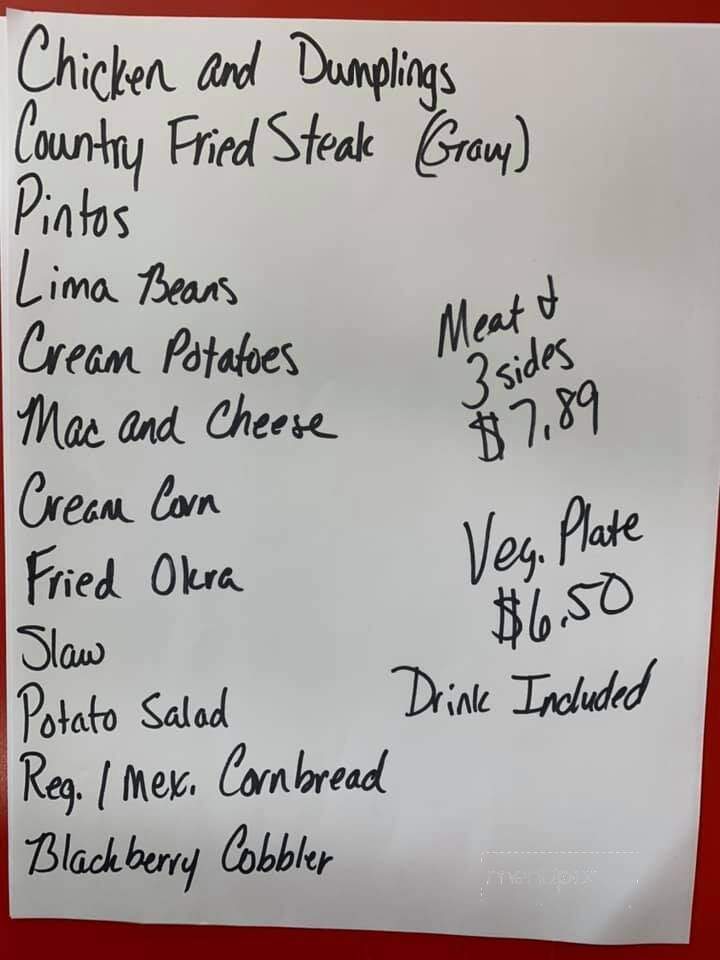 Chicken and Dumplings
Country Fried Steak (Gravy)
Pintos
Lima Beans
Cream Potatoes
Mac and Cheese
Cream Corn
Fried Okra
Slaw
Potato Salad
Reg. / Mex. Cornbread
Blackberry Cobbler
Meat &
3 sides
$7.89
Veg. Plate
$6.50
Drink Included
menupix